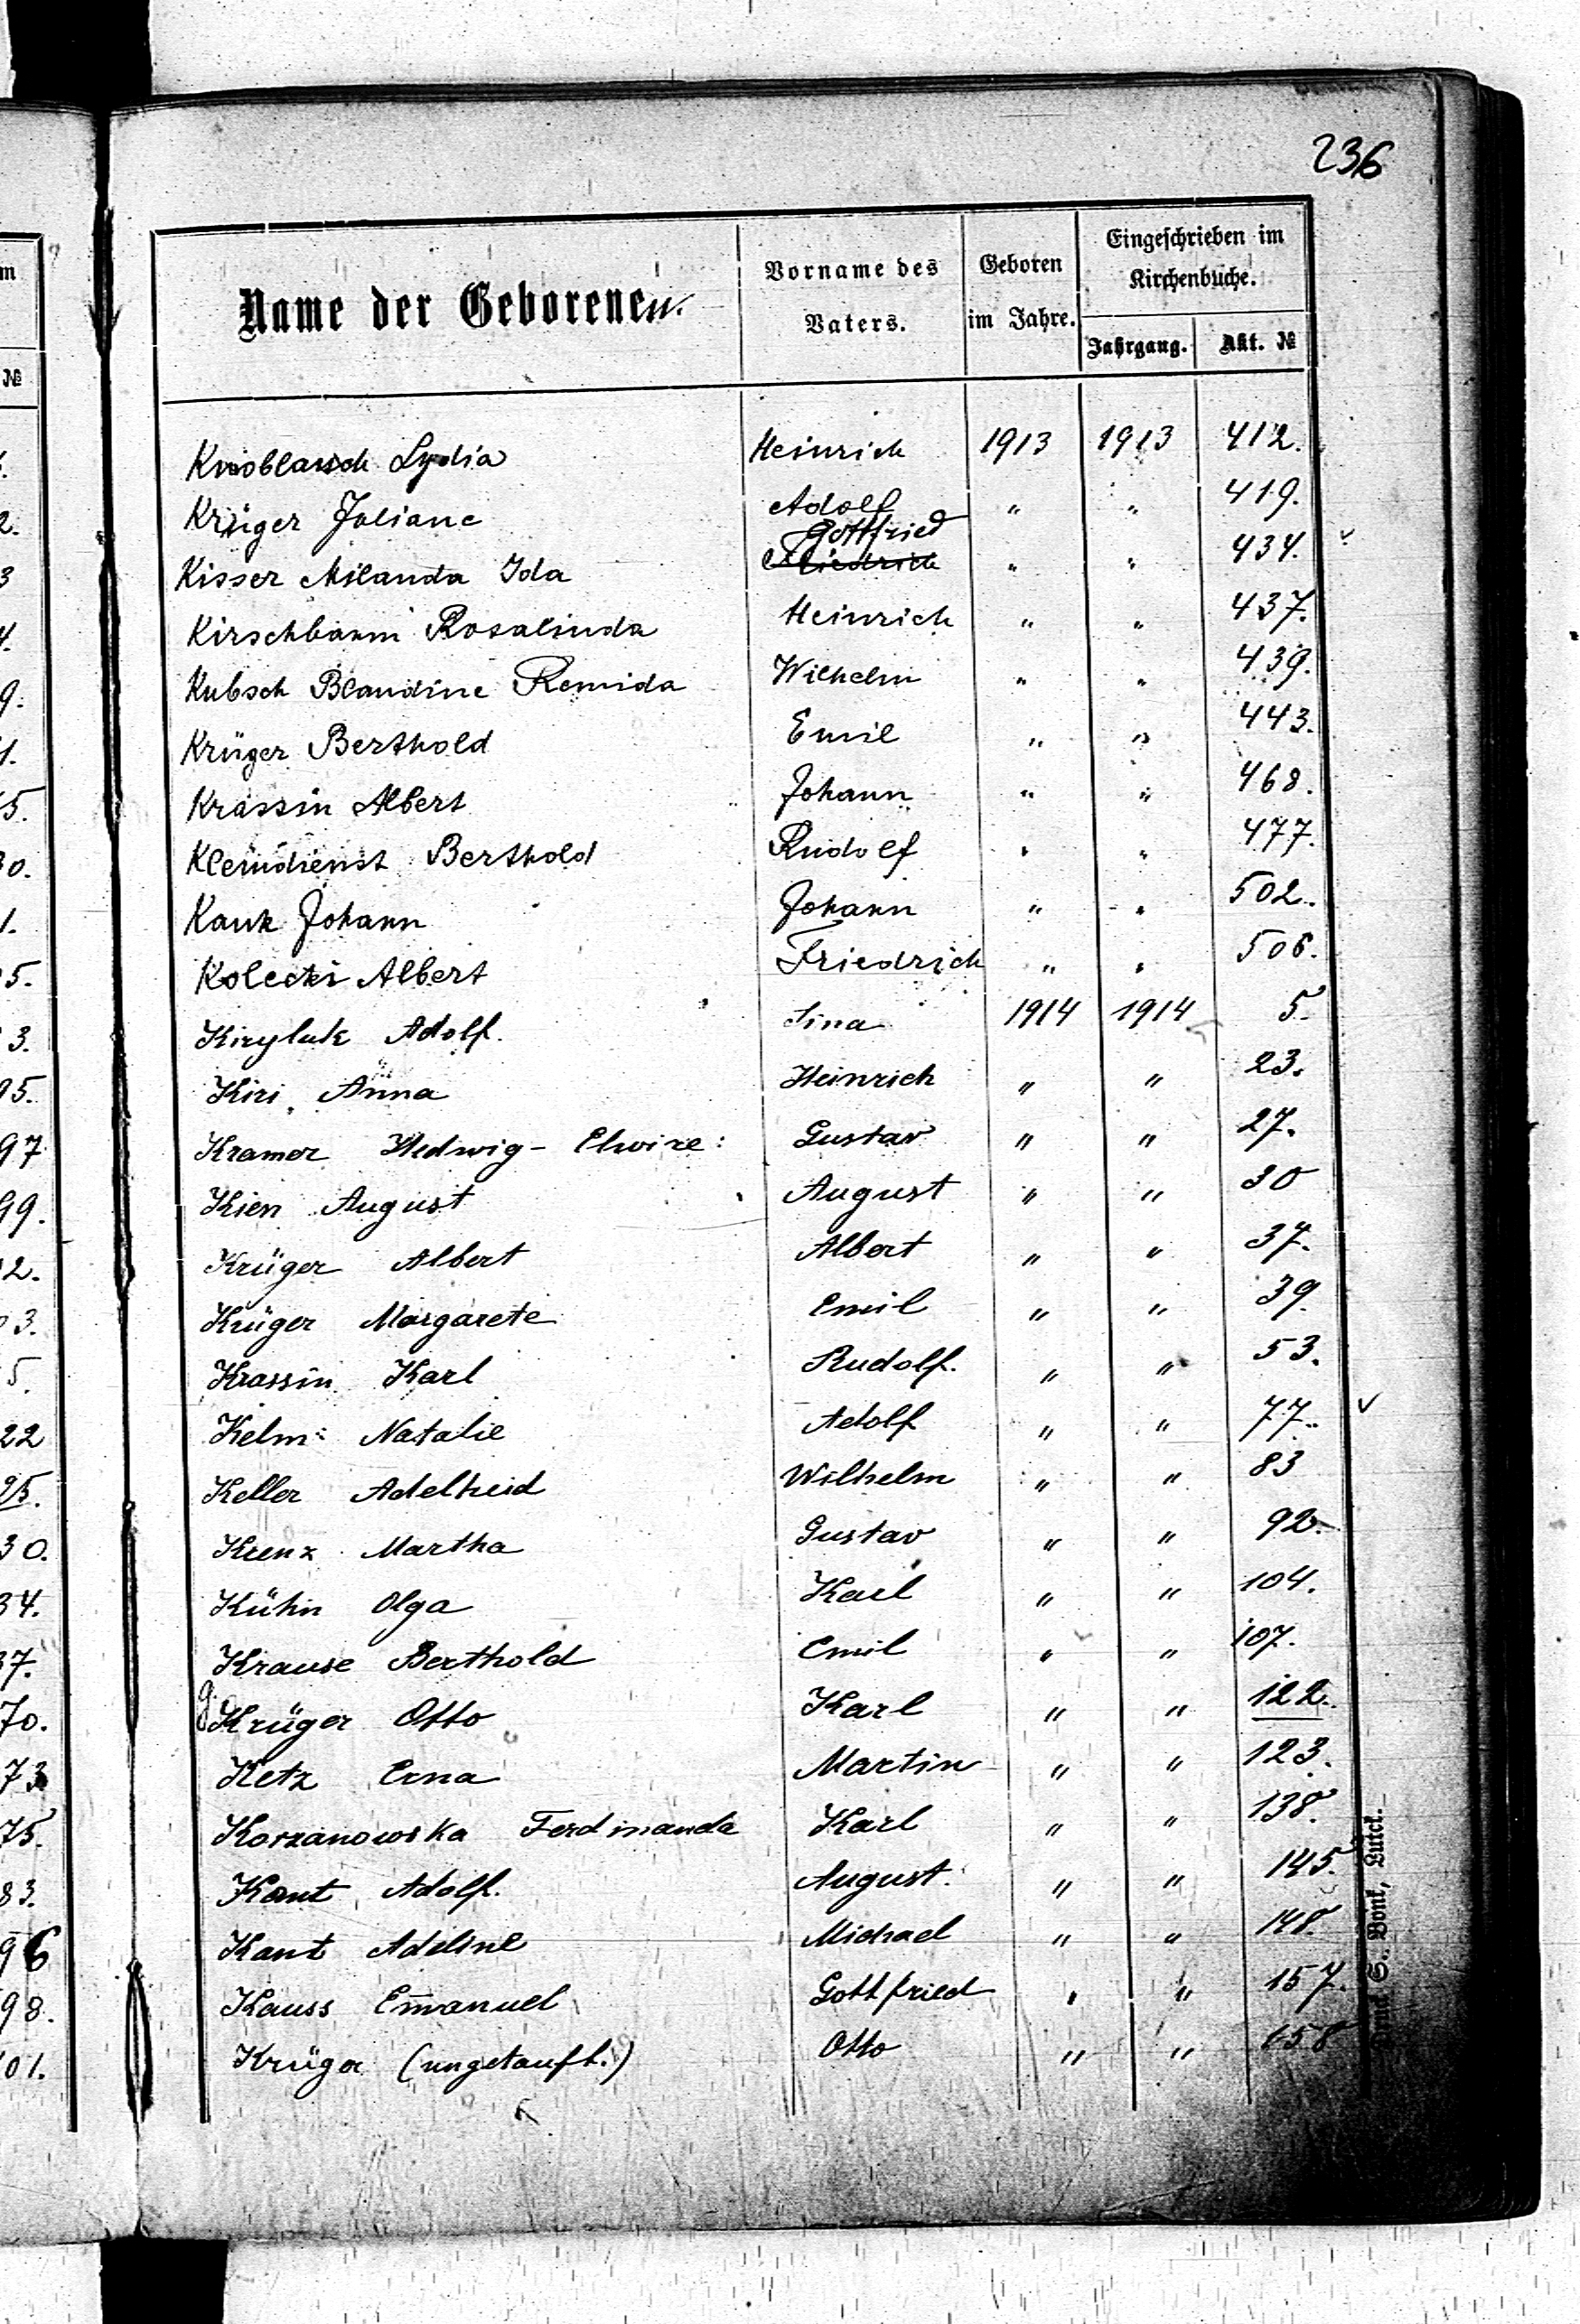 236
Name der Geborenen. Vorname des Vaters. Geboren im Jahre. Eingeschrieben im Kirchenbuche.
Jahrgang. Akt. №
Knoblauch Lydia Heinrich 1913 1913 412.
Krüger Juliane Adolf " " 419.
Gottfried
Kisser Milanda Ida Friedrich " " 434.
Kirschbaum Rosalinda Heinrich " " 437.
Kubsch Blandine Remida Wilhelm " " 439.
Krüger Berthold Emil " " 443.
Krassin Albert Johann " " 468.
Kleindienst Berthold Rudolf " " 477.
Kauk Johann Johann " " 502.
Kolecki Albert Friedrich " " 506.
Kiryluk Adolf. Lina 1914 1914 5.
Kiri Anna Heinrich " " 23.
Kramer Hedwig - Elwire: Gustav " " 27.
Kien August August " " 30
Krüger Albert Albert " " 37.
Krüger Margarete Emil " " 39.
Krassin Karl Rudolf. " " 53.
Kelm Natalie Adolf " " 77.
Keller Adelheid Wilhelm " " 83
Kienz Martha Gustav " " 92.
Kühn Olga Karl " " 104.
Krause Berthold Emil " " 107.
Krüger Otto Karl " " 122.
Ketz Erna Martin " " 123.
Korzanowska Ferdinanda Karl " " 138.
Kant Adolf. August. " " 145.
Kant Adeline Michael " " 148.
Kauss Em̄anuel Gottfried " " 157.
Krüger (ungetauft.) Otto " " 158
Druck S. Bonk, Luck.